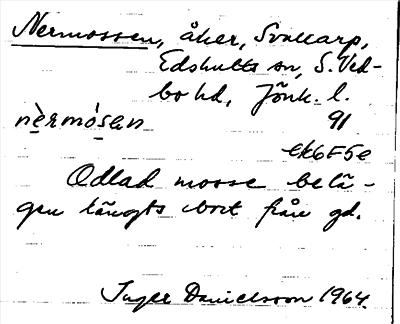 Nermossen, åker, Svallarp,
Edshults sn, S. Ved-
bo hd, Jönk. l.
nèrmósen 91
ek6F5e
Odlad mosse belä-
gen längts bort från gd.
Inger Danielsson 1964